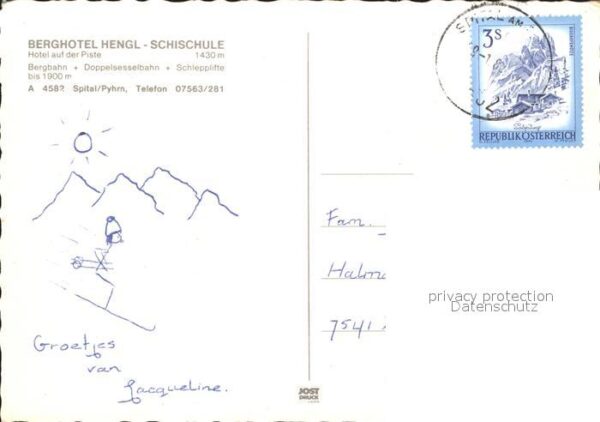 BERGHOTEL HENGL - SCHISCHULE
Hotel auf der Piste 1430 m
Bergbahn + Doppelsesselbahn + Schlepplifte
bis 1900 m
A 4582 Spital/Pyhrn, Telefon 07563/281
SPITAL AM
3S
REPUBLIK ÖSTERREICH
Fam.
Halm
7541
privacy protection
Datenschutz
Groetjes
van
Jacqueline.
JOST
DRUCK